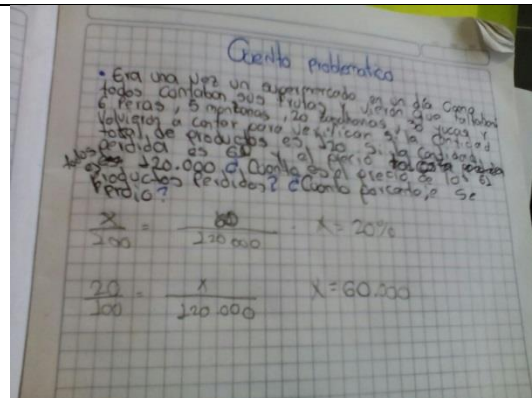 Cuento problematico
• Era una vez un supermercado, en un dia como
todos contaban sus frutas y vieron que faltaban
6 peras, 5 manzanas, 20 zanahorias, 30 yucas y
volvieron a contar para verificar si la cantidad
total de productos es 120 si la cantidad
perdida es 60 y el precio
todos es 120.000 ¿Cuanto es el precio de los
productos perdidos? ¿Cuanto porcentaje se
perdio?
x/100 = 60/120.000 x = 20%
20/100 = x/120.000 x = 60.000